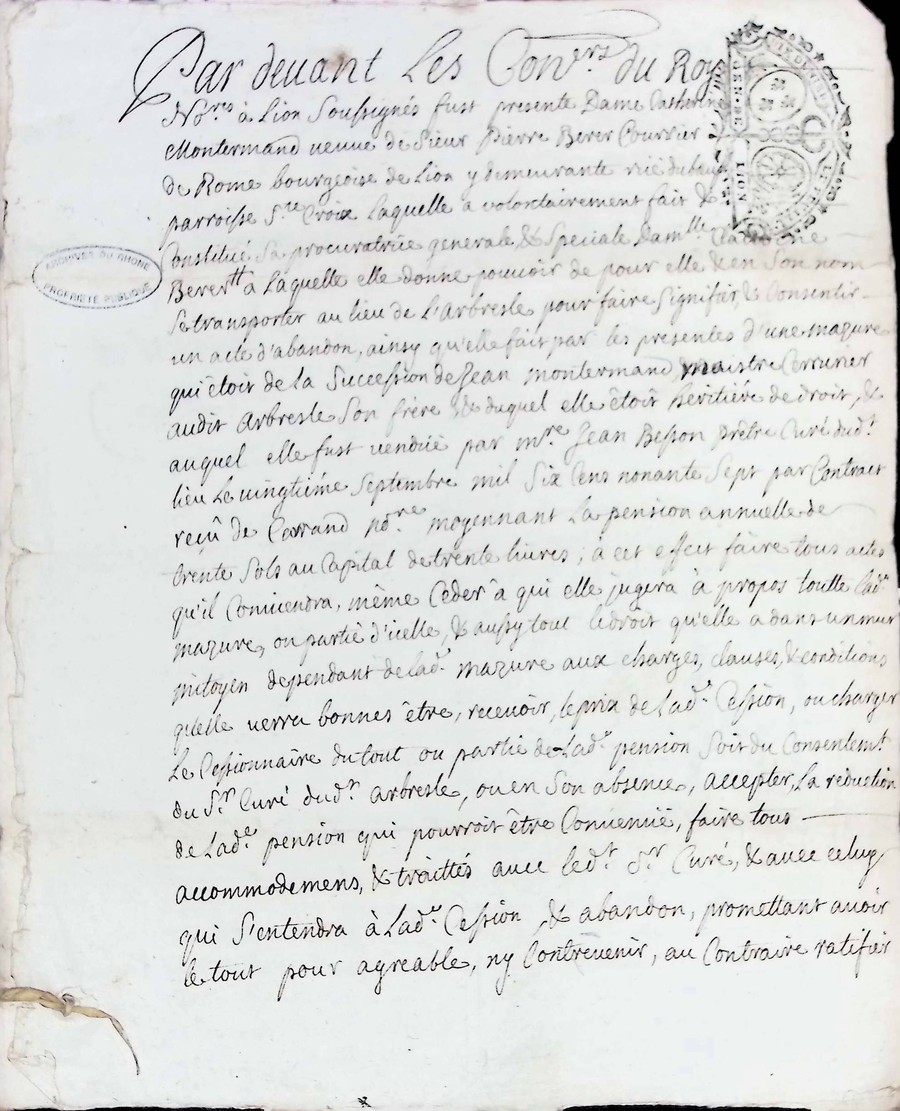 Par devant Les Con.ers du Roy
No.res à Lion Soussignés fust presente Dame Catherine
Montermand veuve de Sieur Pierre Berer Courrier
de Rome bourgeoise de Lion y demeurante rüe du bœuf
parroisse S.te Croix Laquelle a volontairement fait &
Constitüé Sa procuratrice generale & Speciale Dam.lle Catherine
Berer à Laquelle elle donne pouvoir de pour elle & en Son nom
Se transporter au lieu de L'Arbresle pour faire Signifier & Consentir
un acte d'abandon, ainsy qu'elle fait par les presentes d'une mazure
qui êtoit de La Succession de Jean Montermand maistre Cerrurier
audit Arbresle Son frère & duquel elle êtoit heritiére de droit, &
auquel elle fust vendüe par M.re Jean Besson Prêtre Curé dud.t
lieu Le vingtiéme Septembre mil Six Cens nonante Sept par Contract
reçû de no.re moyennant La pension annuelle de
trente Sols au Capital de trente livres; à cet effect faire tous actes
qu'il Conviendra, même Ceder à qui elle jugera à propos toutte lad.e
mazure, ou partie d'icelle, & aussy tout le droit qu'elle a dans un mur
mitoyen dependant de lad.e mazure aux charges, clauses, & conditions
qu'elle verra bonnes être, recevoir, le prix de Lad.e Cession, ou charger
Le Cessionnaire du tout ou partie de Lad.e pension Soit du Consentem.t
du S.r Curé dud.t arbresle, ou en Son absence, accepter, La réduction
de Lad.e pension qui pourroit être Convenüe, faire tous
accommodemens, & traittés avec led.t S.r Curé, & avec celuy
qui S'entendra à Lad.e Cession & abandon, promettant avoir
le tout pour agreable, ny Contrevenir, au Contraire ratifier
ARCHIVES DU RHÔNE
PROPRIÉTÉ PUBLIQUE
GEN. DE
LION